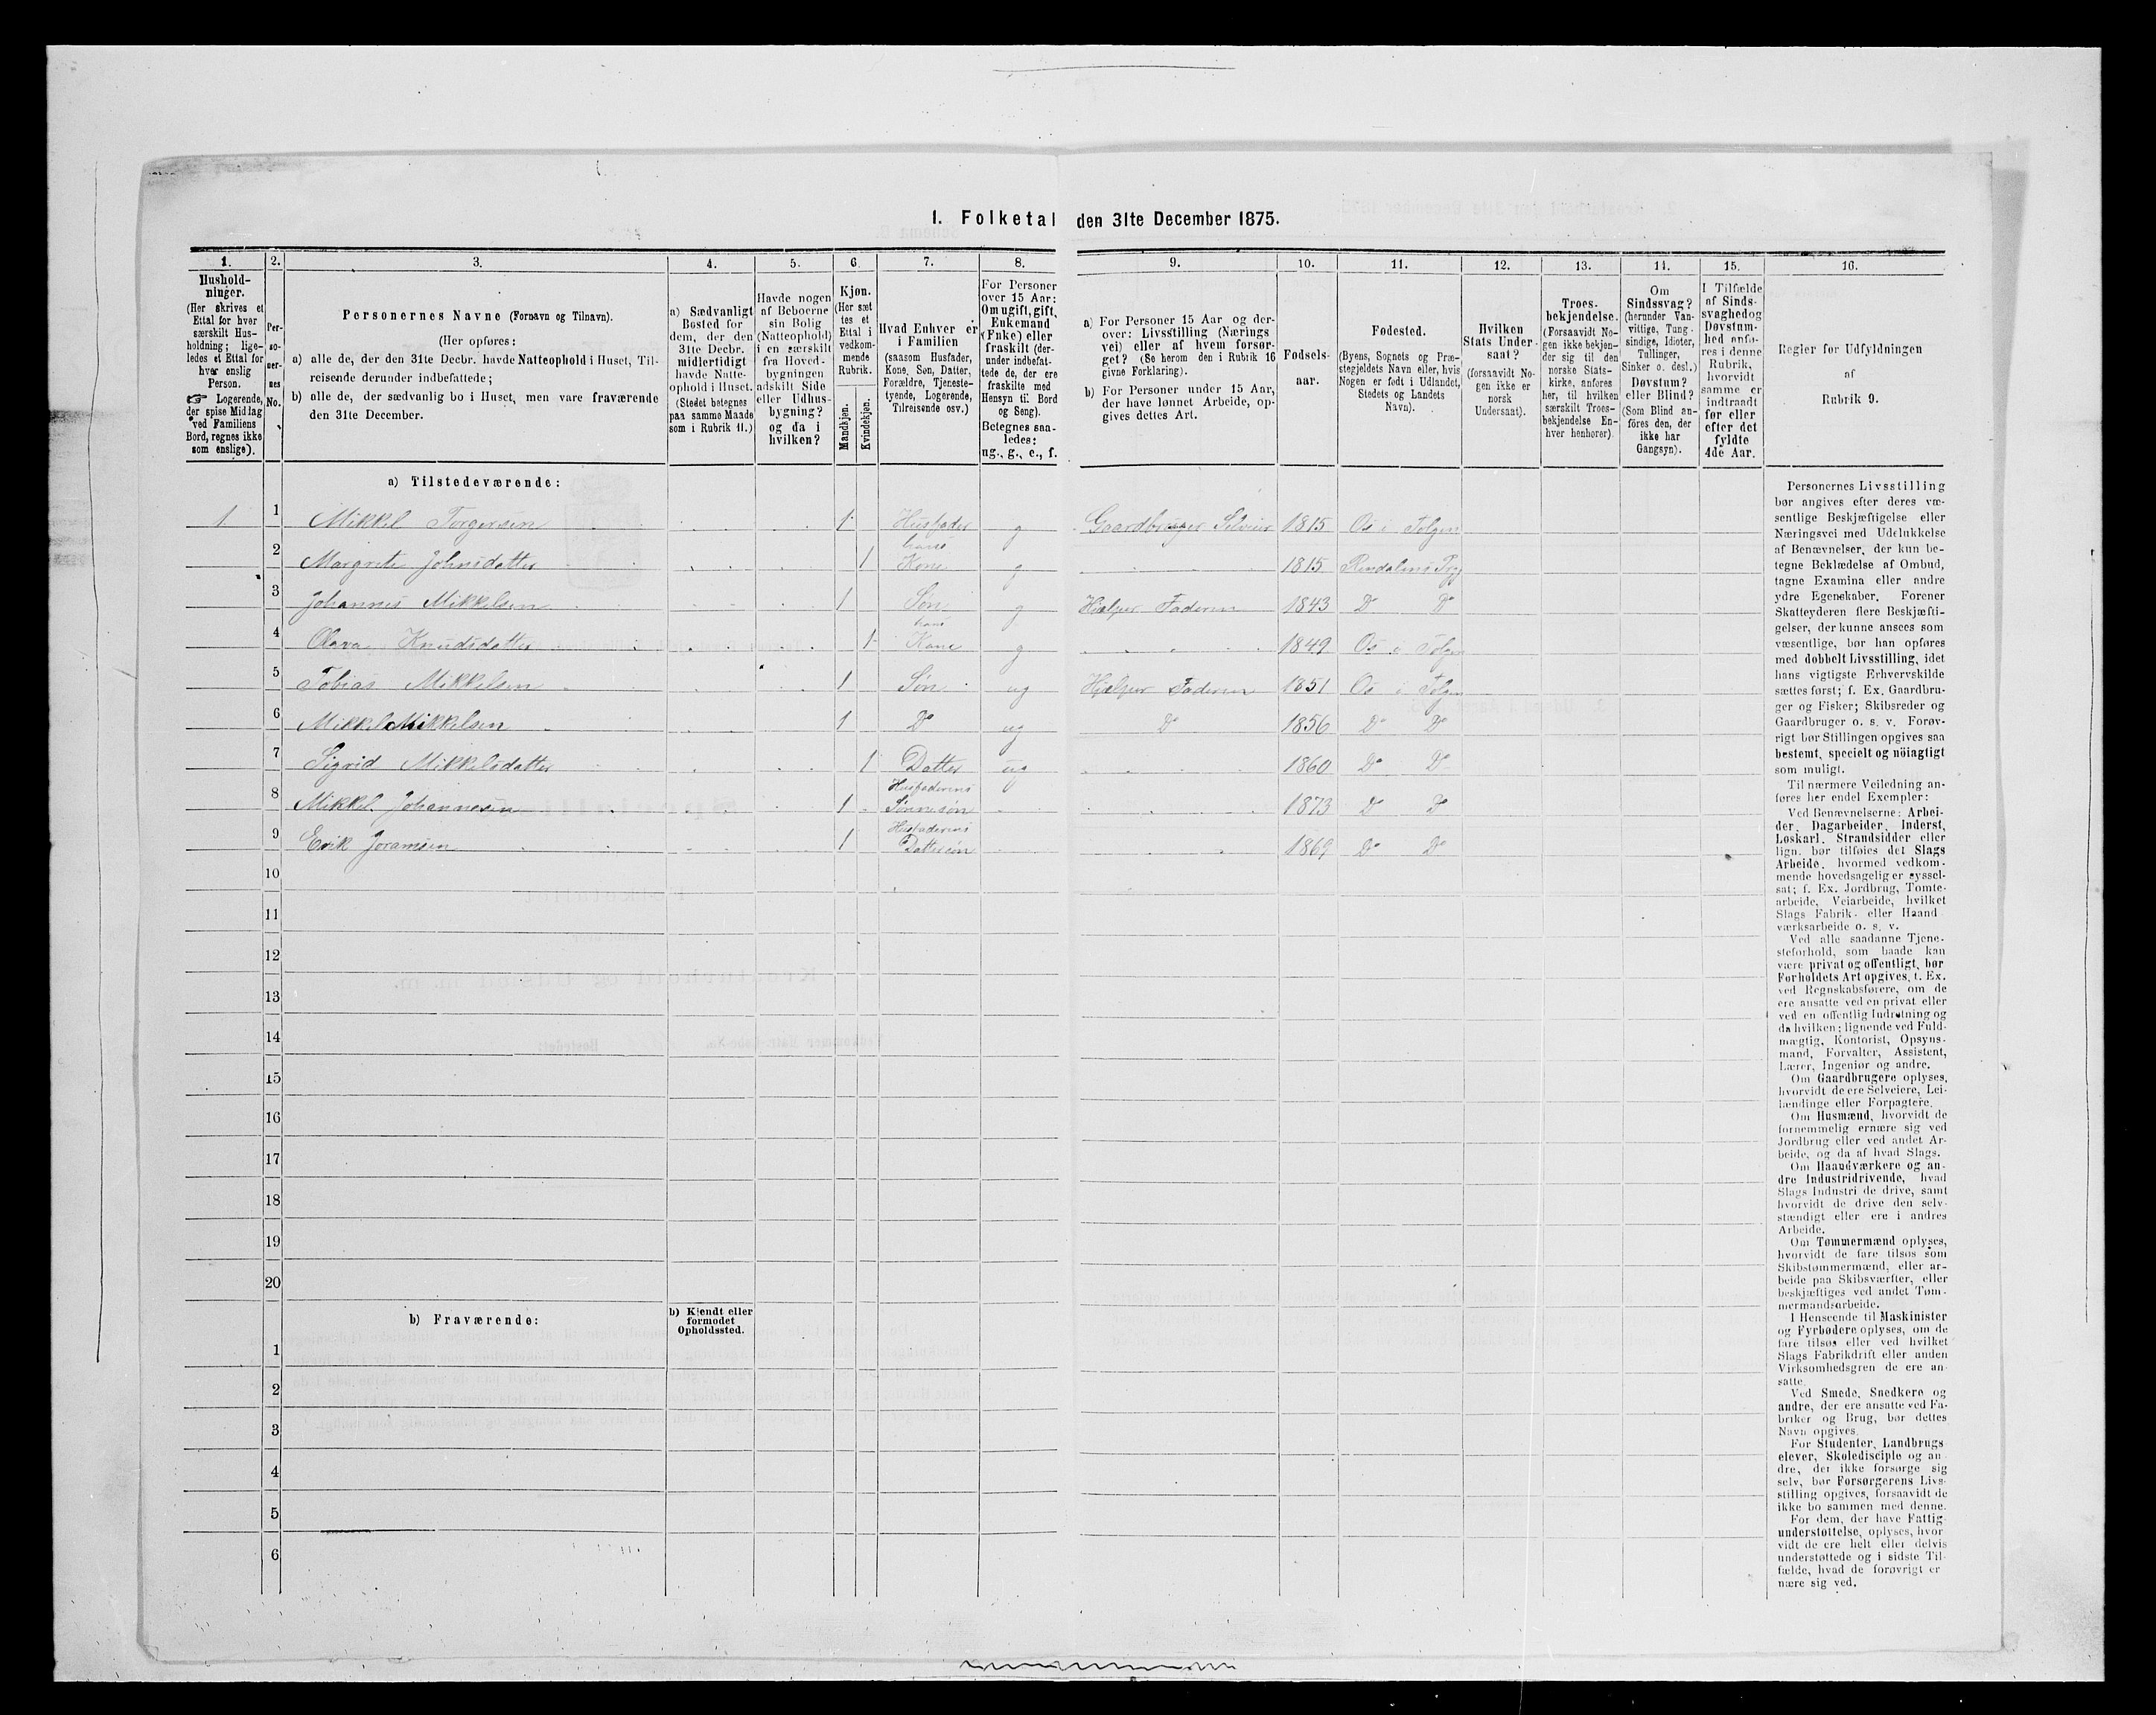 1. Folketal den 31te December 1875.
1. 2. 3. 4. 5. 6. 7. 8. 9. 10. 11. 12. 13. 14. 15. 16.
Hushold-
ninger.
(Her skrives et
Ettal for hver
særskilt Hus-
holdning; lige-
ledes et Ettal for
hver enslig
Person.
☞ Logerende,
der spise Middag
ved Familiens
Bord, regnes ikke
som enslige).
Per-
so-
ner-
nes
No.
Personernes Navne (Fornavn og Tilnavn).
(Her opføres:
a) alle de, der den 31te Decbr. havde Natteophold i Huset, Til-
reisende derunder indbefattede;
b) alle de, der sædvanlig bo i Huset, men vare fraværende
den 31te December.
a) Sædvanligt
Bosted for
dem, der den
31te Decbr.
midlertidigt
havde Natte-
ophold i Huset.
(Stedet betegnes
paa samme Maade
som i Rubrik 11.)
Havde nogen
af Beboerne
sin Bolig
(Natteophold)
i en særskilt
fra Hoved-
bygningen
adskilt Side
eller Udhus-
bygning?
og da i
hvilken?
Kjøn.
(Her sæt
tes et
Ettal i
vedkom-
mende
Rubrik.
Mandkjøn.
Kvindekjøn.
Hvad Enhver er
i Familien
(saasom Husfader,
Kone, Søn, Datter,
Forældre, Tjeneste-
tyende, Logerende,
Tilreisende osv.)
For Personer
over 15 Aar:
Om ugift, gift,
Enkemand
(Enke) eller
fraskilt (der-
under indbefat-
tede de, der ere
fraskilte med
Hensyn til Bord
og Seng).
Betegnes saa-
ledes:
ug., g., e., f.
a) For Personer 15 Aar og der-
over: Livsstilling (Nærings
vei) eller af hvem forsør-
get? (Se herom den i Rubrik 16
givne Forklaring).
b) For Personer under 15 Aar,
der have lønnet Arbeide, op-
gives dettes Art.
Fødsels-
aar.
Fødested.
(Byens, Sognets og Præ-
stegjeldets Navn eller, hvis
Nogen er født i Udlandet,
Stedets og Landets
Navn).
Hvilken
Stats Under-
saat?
(forsaavidt No-
gen ikke er
norsk
Undersaat).
Troes-
bekjendelse.
(Forsaavidt No-
gen ikke bekjen-
der sig til den
norske Stats-
kirke, anføres
her, til hvilken
særskilt Troes-
bekjendelse En-
hver henhører).
Om
Sindssvag?
(herunder Van-
vittige, Tung-
sindige, Idioter,
Tullinger,
Sinker o. desl.)
Døvstum?
eller Blind?
(Som Blind an-
føres den, der
ikke har
Gangsyn).
I Tilfælde
af Sinds-
svaghed og
Døvstum-
hed anfø-
res i denne
Rubrik,
hvorvidt
samme er
indtraadt
før eller
efter det
fyldte
4de Aar.
Regler for Udfyldningen
af
Rubrik 9.
a) Tilstedeværende:
1 1 Mikkel Torgersen 1 Husfader g Gaardbruger Selveier 1815 Os i Tolgen
2 Margrete Johnsdatter 1 hans Kone g 1815 Rendalens Prg
3 Johannes Mikkelsen 1 Søn g Hjælper Faderen 1843 Do Do
4 Olava Knudsdatter 1 hans Kone g 1849 Os i Tolgen
5 Tobias Mikkelsen 1 Søn ug Hjælper Faderen 1851 Os i Tolgen
6 Mikkel Mikkelsen 1 Do ug Do 1856 Do Do
7 Sigrid Mikkelsdatter 1 Datter ug 1860 Do Do
8 Mikkel Johannesen 1 Husfaderens Sønnesøn 1873 Do Do
9 Erik Joramsen 1 Husfaderens Dattersøn 1869 Do Do
10
11
12
13
14
15
16
17
18
19
20
b) Fraværende:
b) Kjendt eller
formodet
Opholdssted.
1
2
3
4
5
6
Personernes Livsstilling
bør angives efter deres væ-
sentlige Beskjæftigelse eller
Næringsvei med Udelukkelse
af Benævnelser, der kun be-
tegne Beklædelse af Ombud,
tagne Examina eller andre
ydre Egenskaber. Forener
Skatteyderen flere Beskjæfti-
gelser, der kunne ansees som
væsentlige, bør han opføres
med dobbelt Livsstilling, idet
hans vigtigste Erhvervskilde
sættes først; f. Ex. Gaardbru-
ger og Fisker; Skibsreder og
Gaardbruger o. s. v. Forøv-
rigt bør Stillingen opgives saa
bestemt, specielt og nöiagtigt
som muligt.
Til nærmere Veiledning an-
føres her endel Exempler:
Ved Benævnelserne: Arbei-
der, Dagarbeider, Inderst,
Løskarl, Strandsidder eller
lign. bør tilføies det Slags
Arbeide, hvormed vedkom-
mende hovedsagelig er syssel-
sat; f. Ex. Jordbrug, Tomte-
arbeide, Veiarbeide, hvilket
Slags Fabrik- eller Haand-
værksarbeide o. s. v.
Ved alle saadanne Tjene-
steforhold, som baade kan
være privat og offentligt, bør
Forholdets Art opgives, f. Ex.
ved Regnskabsførere, om de
ere ansatte ved en privat eller
ved en offentlig Indretning og
da hvilken; lignende ved Fuld-
mægtig, Kontorist, Opsyns-
mand, Forvalter, Assistent,
Lærer, Ingeniør og andre.
Om Gaardbrugere oplyses,
hvorvidt de ere Selveiere, Lei-
lændinge eller Forpagtere.
Om Husmænd, hvorvidt de
fornemmelig ernære sig ved
Jordbrug eller ved andet Ar-
beide, og da af hvad Slags.
Om Haandværkere og an-
dre Industridrivende, hvad
Slags Industri de drive, samt
hvorvidt de drive den selv-
stændigt eller ere i andres
Arbeide.
Om Tømmermænd oplyses,
hvorvidt de fare tilsøs som
Skibstømmermænd, eller ar-
beide paa Skibsværfter, eller
beskjæftiges ved andet Tøm-
mermandsarbeide.
I Henseende til Maskinister
og Fyrbødere oplyses, om de
fare tilsøs eller ved hvilket
Slags Fabrikdrift eller anden
Virksomhedsgren de ere an-
satte.
Ved Smede, Snedkere og
andre, der ere ansatte ved Fa-
briker og Brug, bør dettes
Navn opgives.
For Studenter, Landbrugs
elever, Skoledisciple og an-
dre, der ikke forsørge sig
selv, bør Forsørgerens Livs-
stilling opgives, forsaavidt de
ikke bo sammen med denne.
For dem, der have Fattig-
understøttelse, oplyses, hvor-
vidt de ere helt eller delvis
understøttede og i sidste Til-
fælde, hvad de forøvrigt er-
nære sig ved.